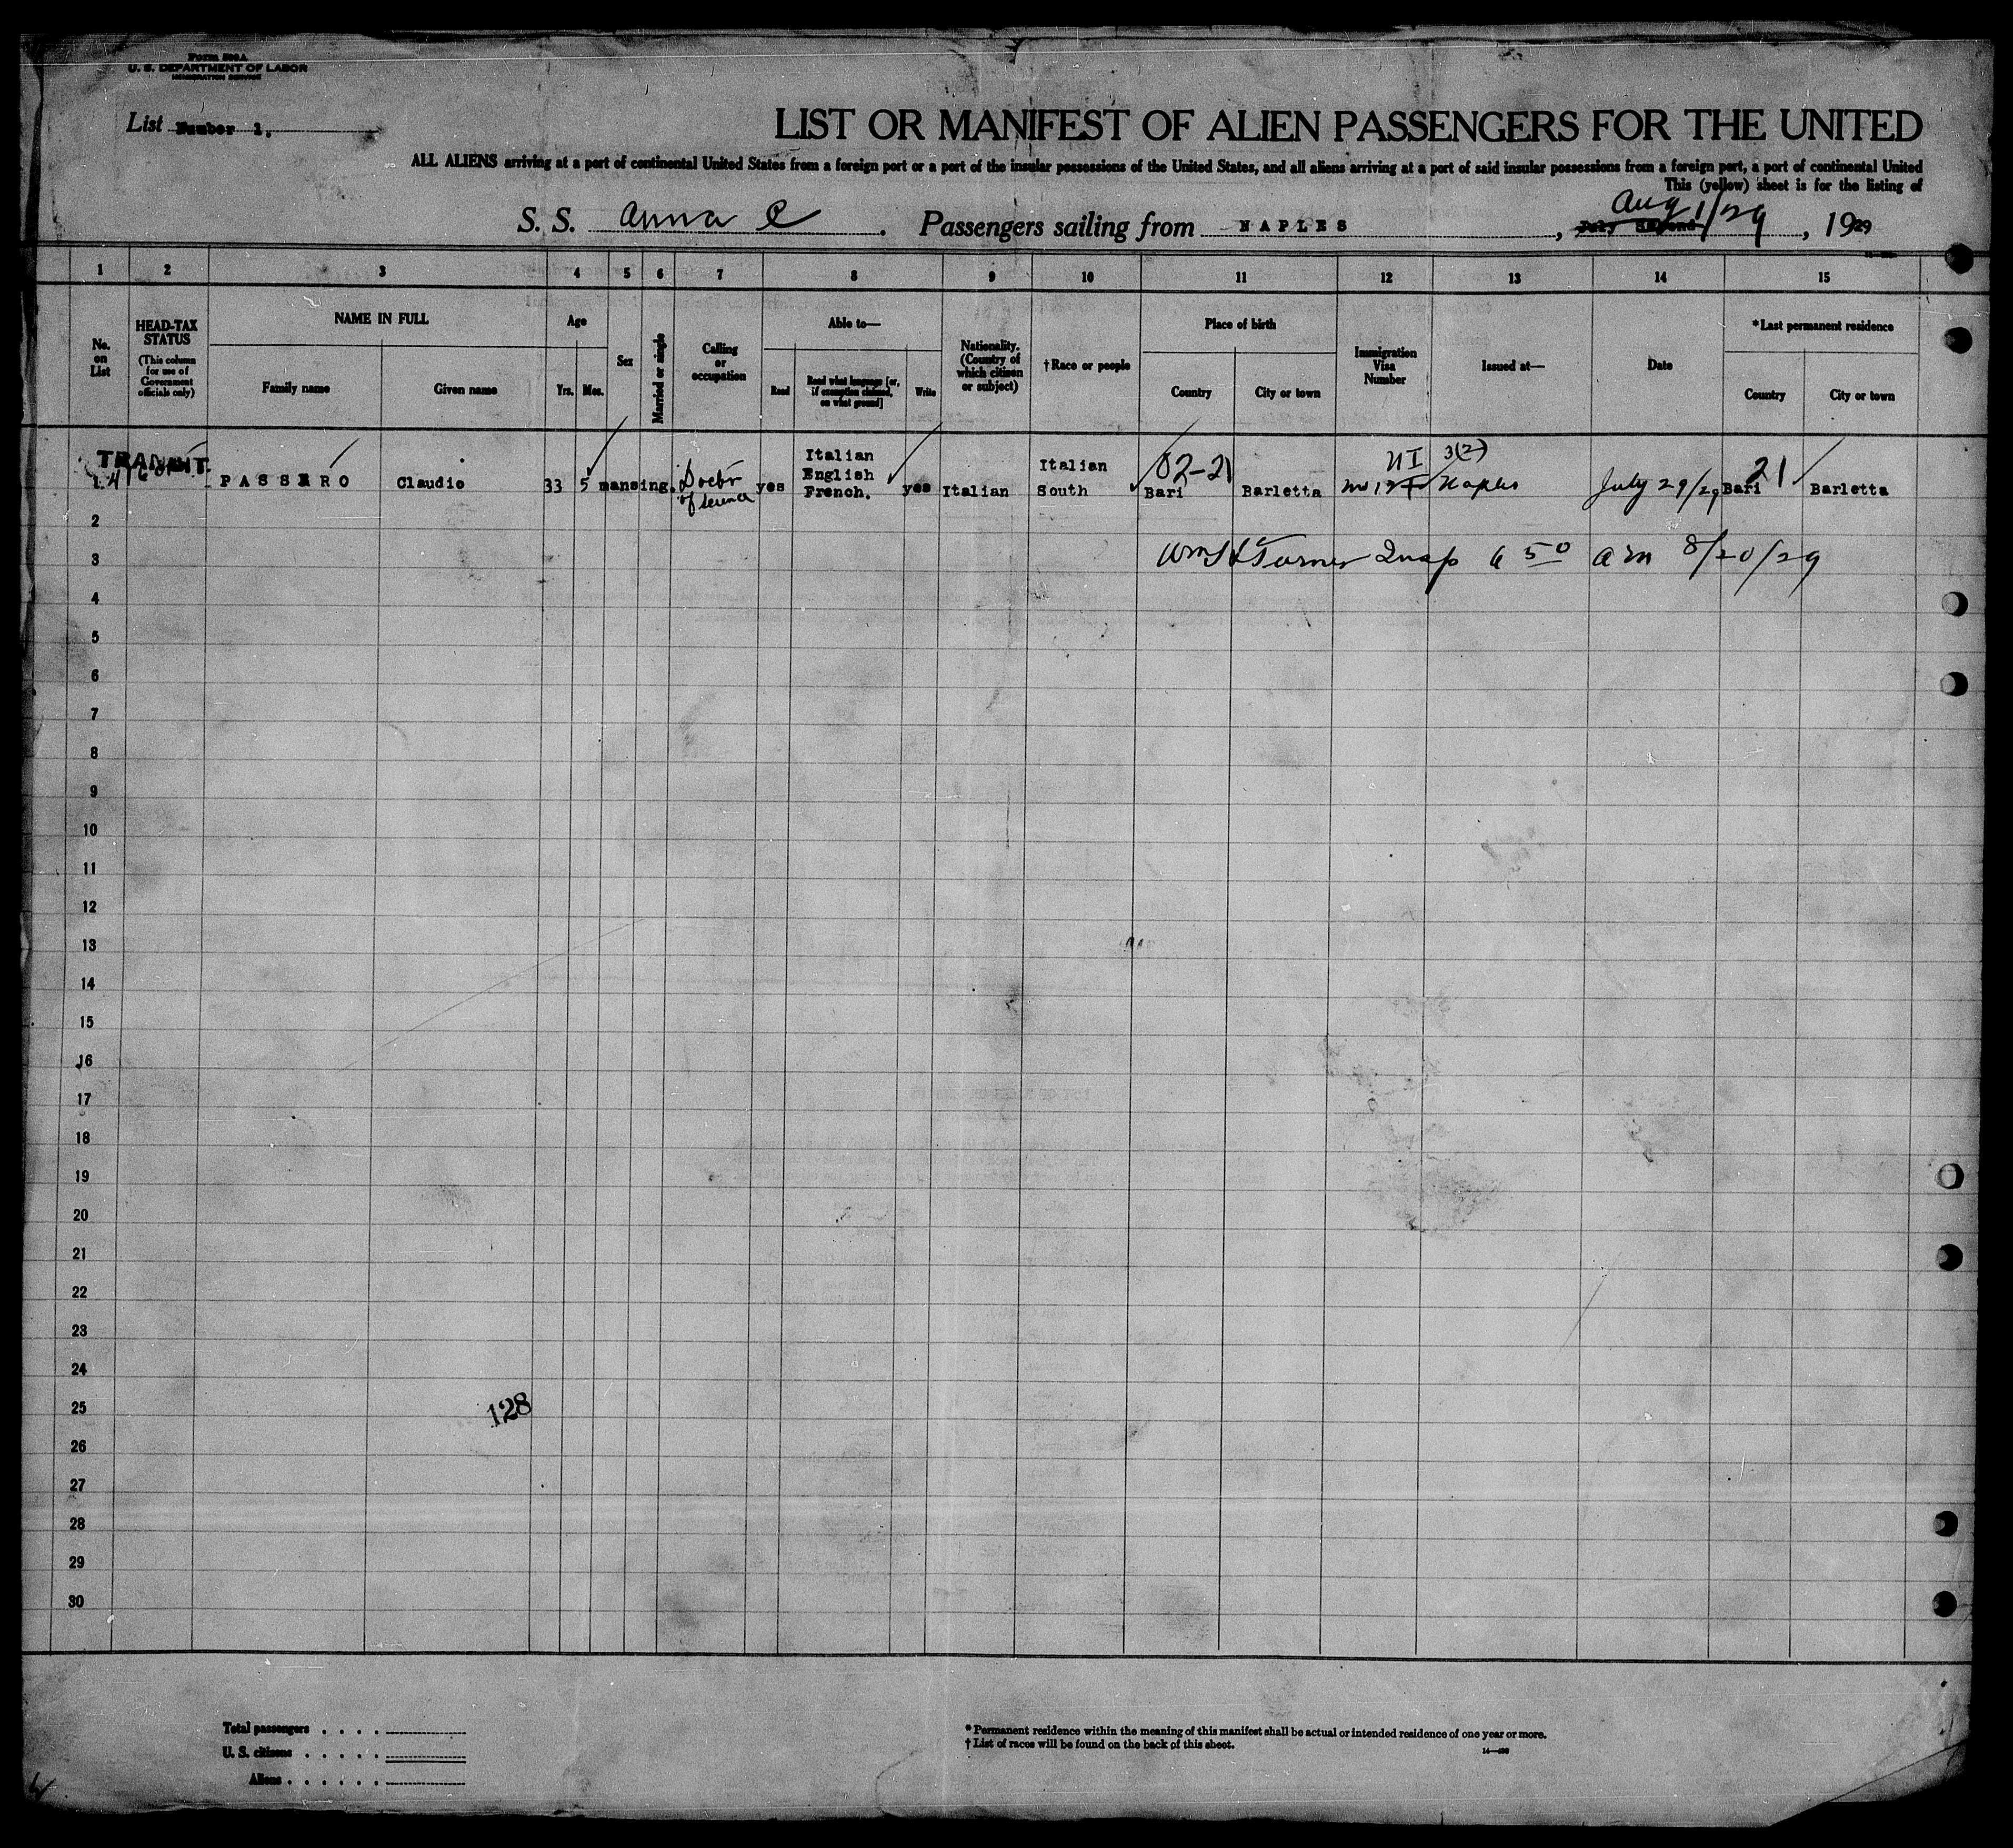 Form 500A
U. S. DEPARTMENT OF LABOR
IMMIGRATION SERVICE
List Number 1.
LIST OR MANIFEST OF ALIEN PASSENGERS FOR THE UNITED
ALL ALIENS arriving at a port of continental United States from a foreign port or a part of the insular possessions of the United States, and all aliens arriving at a port of said insular possessions from a foreign port, a port of continental United
This (yellow) sheet is for the listing of
Aug 1/29
S. S. Anna C . Passengers sailing from NAPLES , July Second , 1929
1 2 3 4 5 6 7 8 9 10 11 12 13 14 15
No. on List
HEAD-TAX STATUS
(This column for use of Government officials only)
NAME IN FULL
Family name
Given name
Age
Yrs. Mos.
Sex
Married or single
Calling or occupation
Able to—
Read
Read what language [or, if exemption claimed, on what ground]
Write
Nationality. (Country of which citizen or subject)
†Race or people
Place of birth
Country
City or town
Immigration Visa Number
Issued at—
Date
*Last permanent residence
Country
City or town
TRANSIT
1 PASSERO Claudio 33 5 man sing. Doctor of science yes Italian English French. yes Italian Italian South 02-21 Bari Barletta 3(2) Naples July 29/29 21 Bari Barletta
2
3 Turner Insp 6 50 am 8/20/29
4
5
6
7
8
9
10
11
12
13
14
15
16
17
18
19
20
21
22
23
24
25 128
26
27
28
29
30
Total passengers . . . .
U. S. citizens . . . . .
Aliens . . . . . .
* Permanent residence within the meaning of this manifest shall be actual or intended residence of one year or more.
† List of races will be found on the back of this sheet.